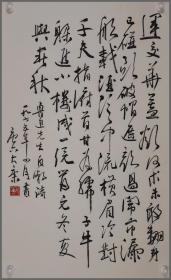 運交華蓋欲何求未敢翻身
已碰頭破帽遮顏過鬧市漏
船載酒泛中流橫眉冷對
千夫指俯首甘為孺子牛
躲進小樓成一統管它冬夏
與春秋 魯迅先生自嘲詩
一九七五年四月